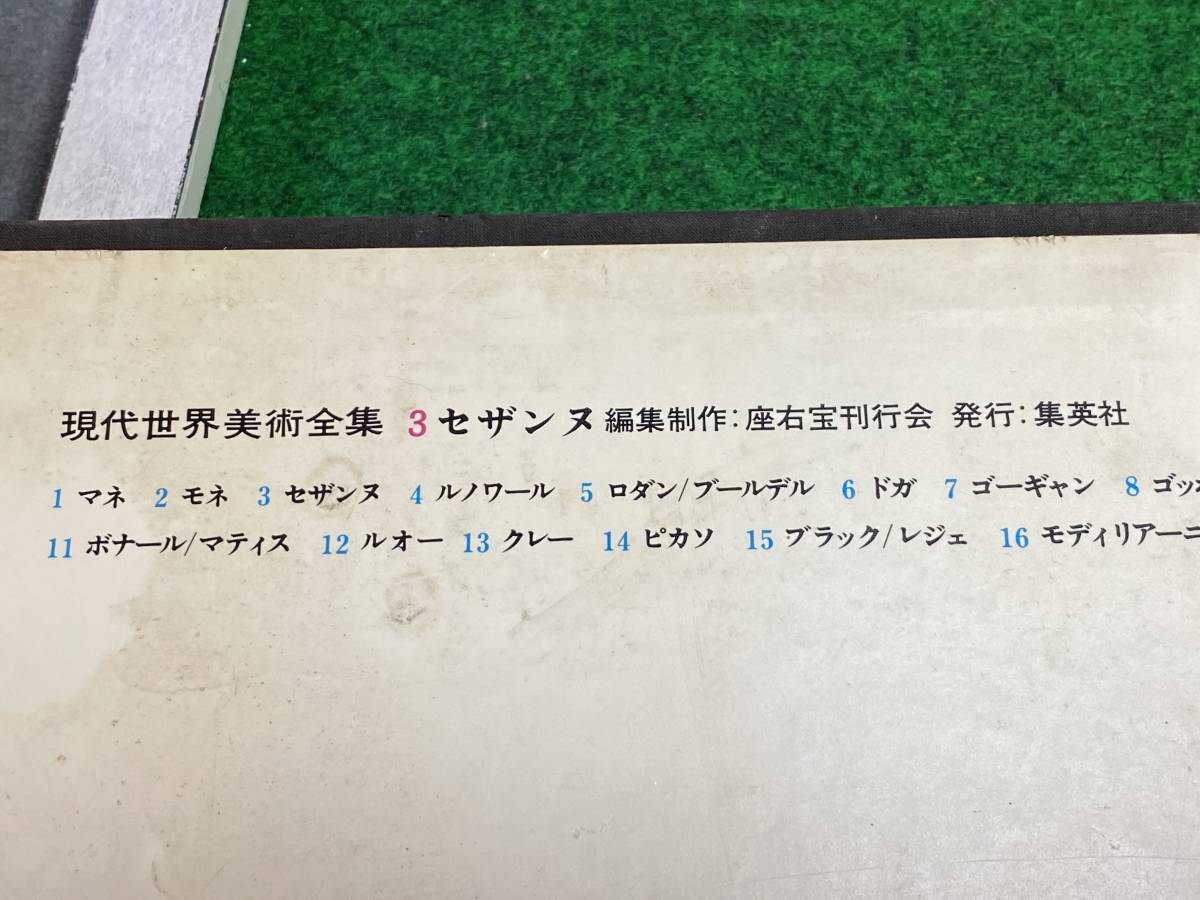 現代世界美術全集 3 セザンヌ 編集制作:座右宝刊行会 発行:集英社
1 マネ 2 モネ 3 セザンヌ 4 ルノワール 5 ロダン/ブールデル 6 ドガ 7 ゴーギャン 8 ゴッ
11 ボナール/マティス 12 ルオー 13 クレー 14 ピカソ 15 ブラック/レジェ 16 モディリアーニ